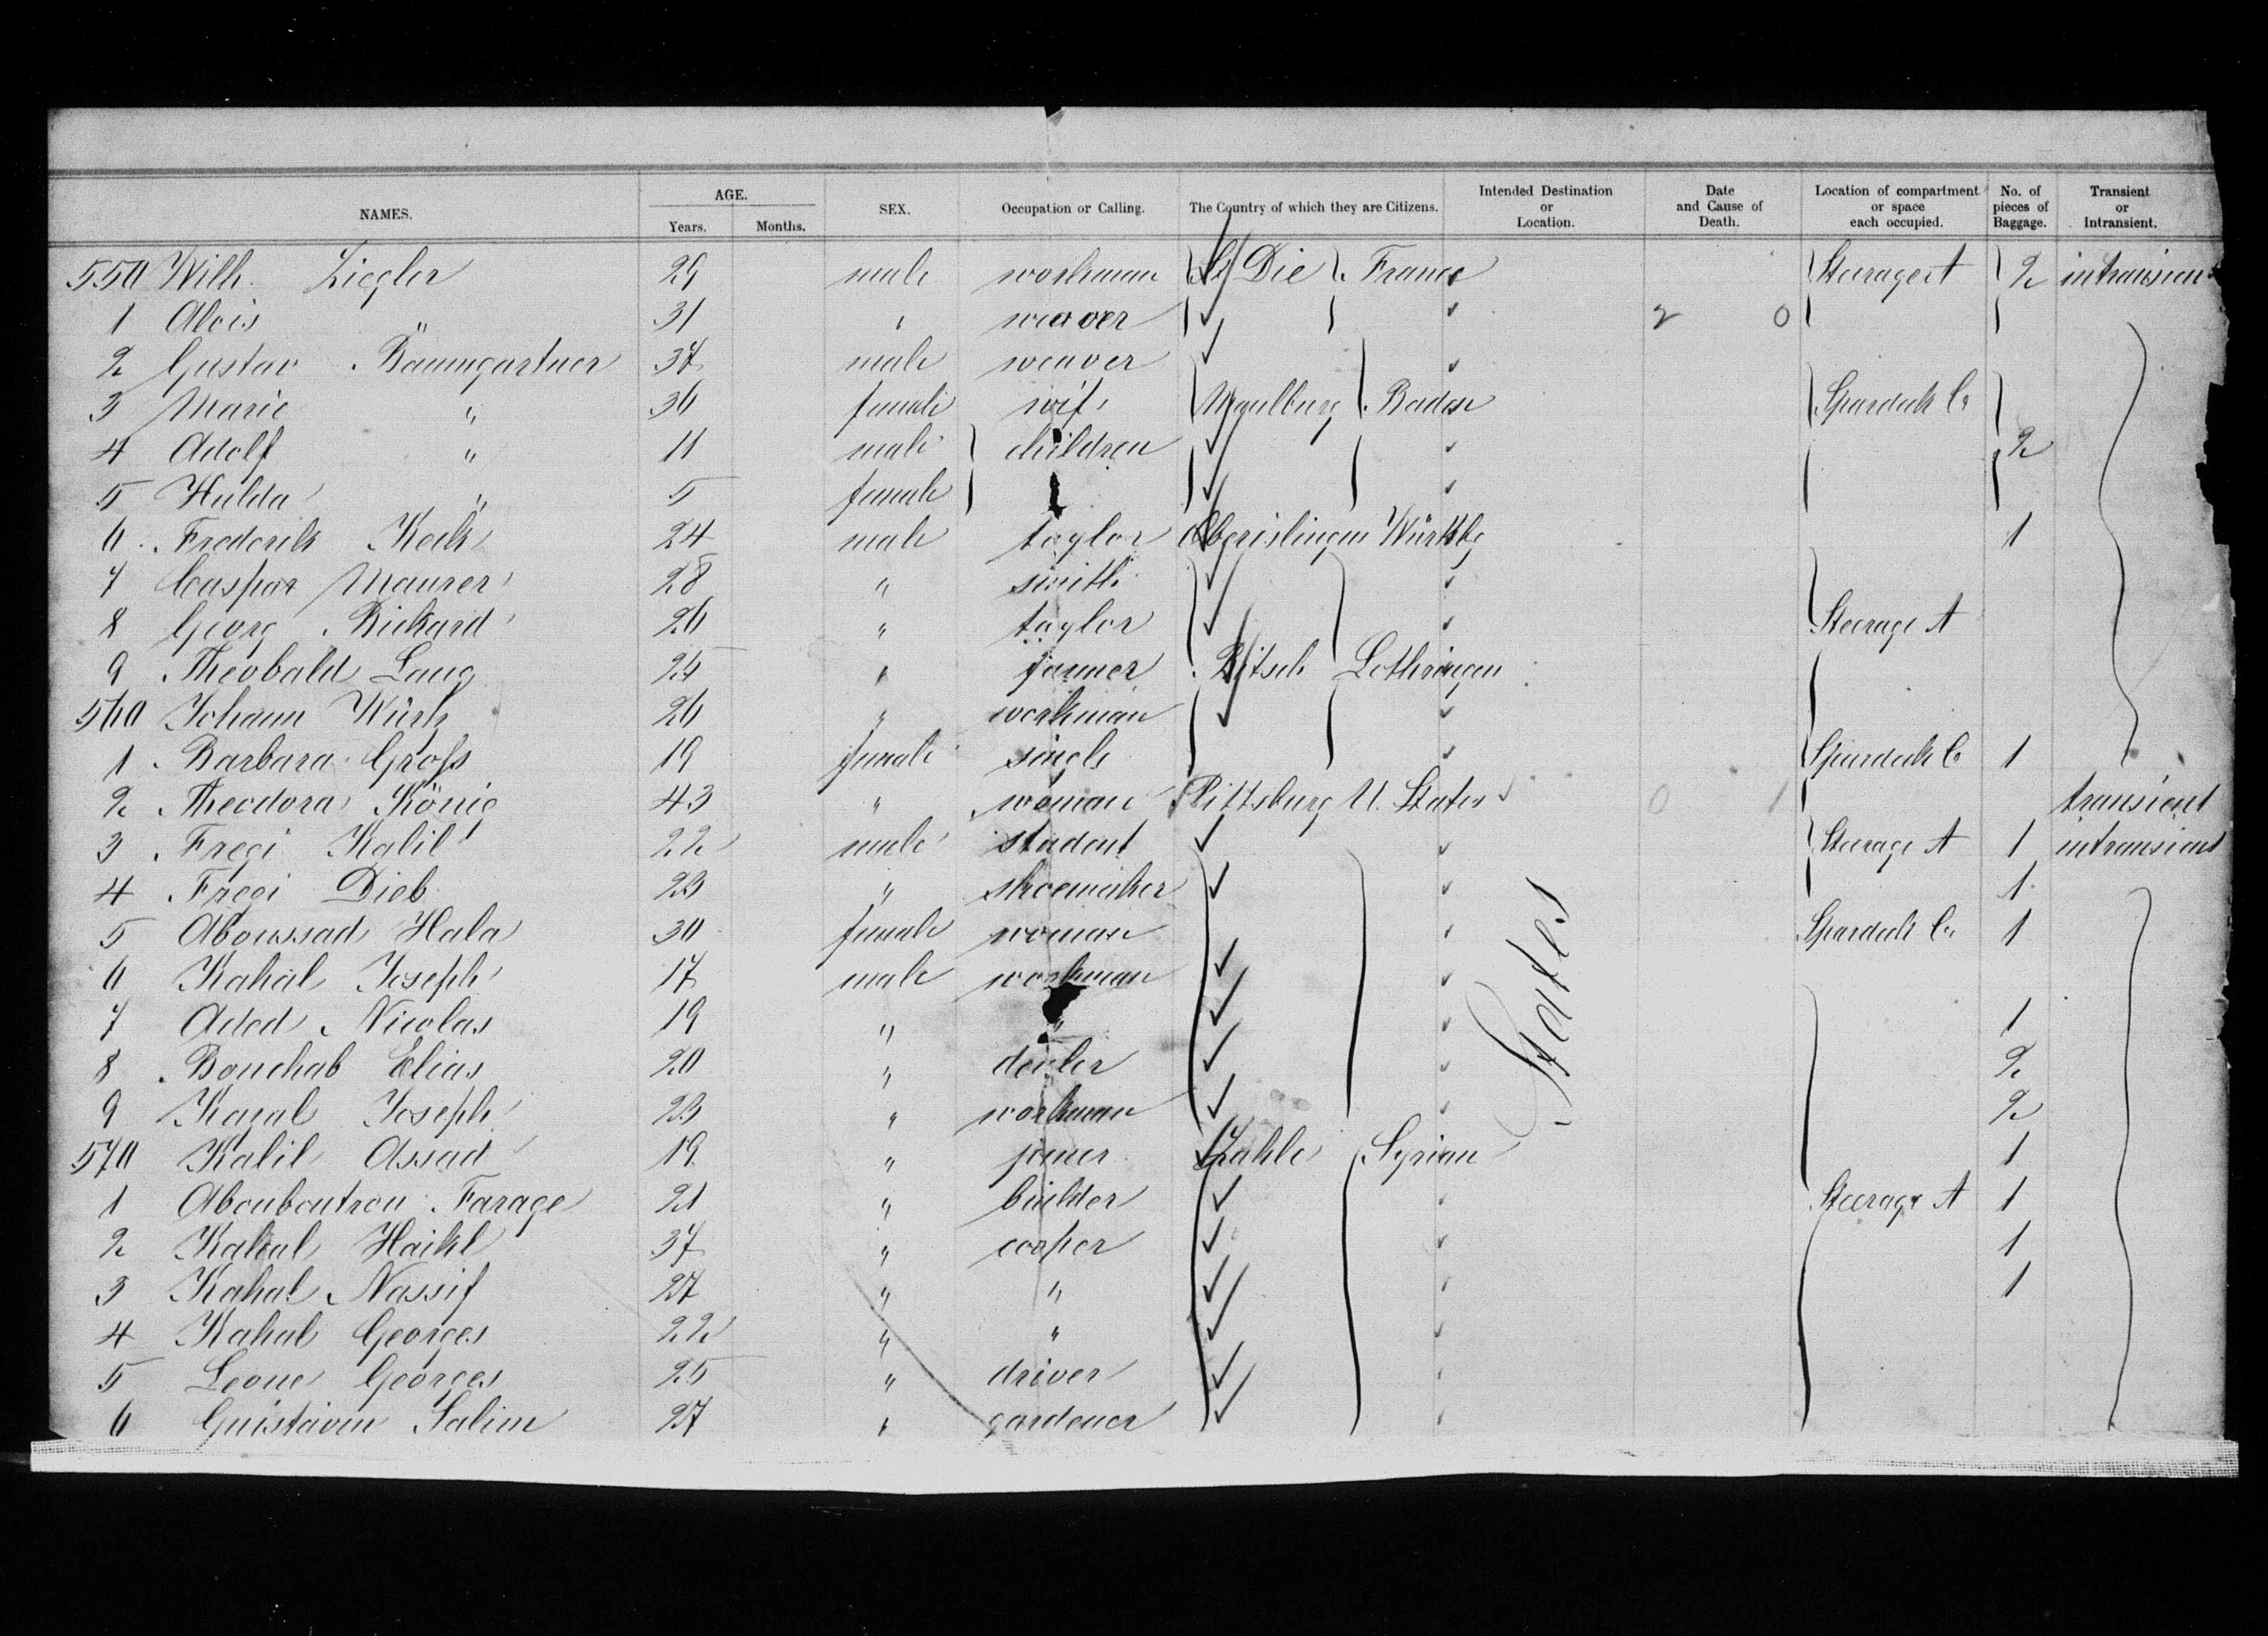 NAMES. AGE. Years. Months. SEX. Occupation or Calling. The Country of which they are Citizens. Intended Destination or Location. Date and Cause of Death. Location of compartment or space each occupied. No. of pieces of Baggage. Transient or Intransient.
550 Wilh. Ziegler 29 male workman St Die France Steerage A 2 intransient
1 Alois " 31 " weaver 2 0
2 Gustav Baumgartner 37 male weaver
3 Marie " 36 female wife Maulburg Baden Spardeck C
4 Adolf " 11 male children 2
5 Hulda " 5 female
6 Frederik Keck 24 male taylor Oberislingen Württbg 1
7 Caspar Maurer 28 " smith
8 Georg Rickard 26 " taylor Steerage A
9 Theobald Lang 25 " farmer Bitsch Lothringen
560 Johann Würtz 26 " workman
1 Barbara Groß 19 female single Spardeck C 1
2 Theodora König 43 " woman Pittsburg U. States 0 1 transient
3 Fregi Kalil 22 male student Steerage A 1 intransient
4 Fregi Dieb 23 " shoemaker 1
5 Aboussad Hala 30 female woman States Spardeck C 1
6 Kahal Joseph 17 male workman
7 Aded Nicolas 19 " " 1
8 Bouchab Elias 20 " dealer 2
9 Kazal Joseph 23 " workman 2
570 Kalil Assad 19 " joiner Zahle Syrian 1
1 Abouboutrou Farage 21 " builder Steerage A 1
2 Kahal Haikl 37 " cooper 1
3 Kahal Nassif 27 " " 1
4 Kahal Georges 22 " "
5 Leone Georges 25 " driver
6 Salim 27 " gardener